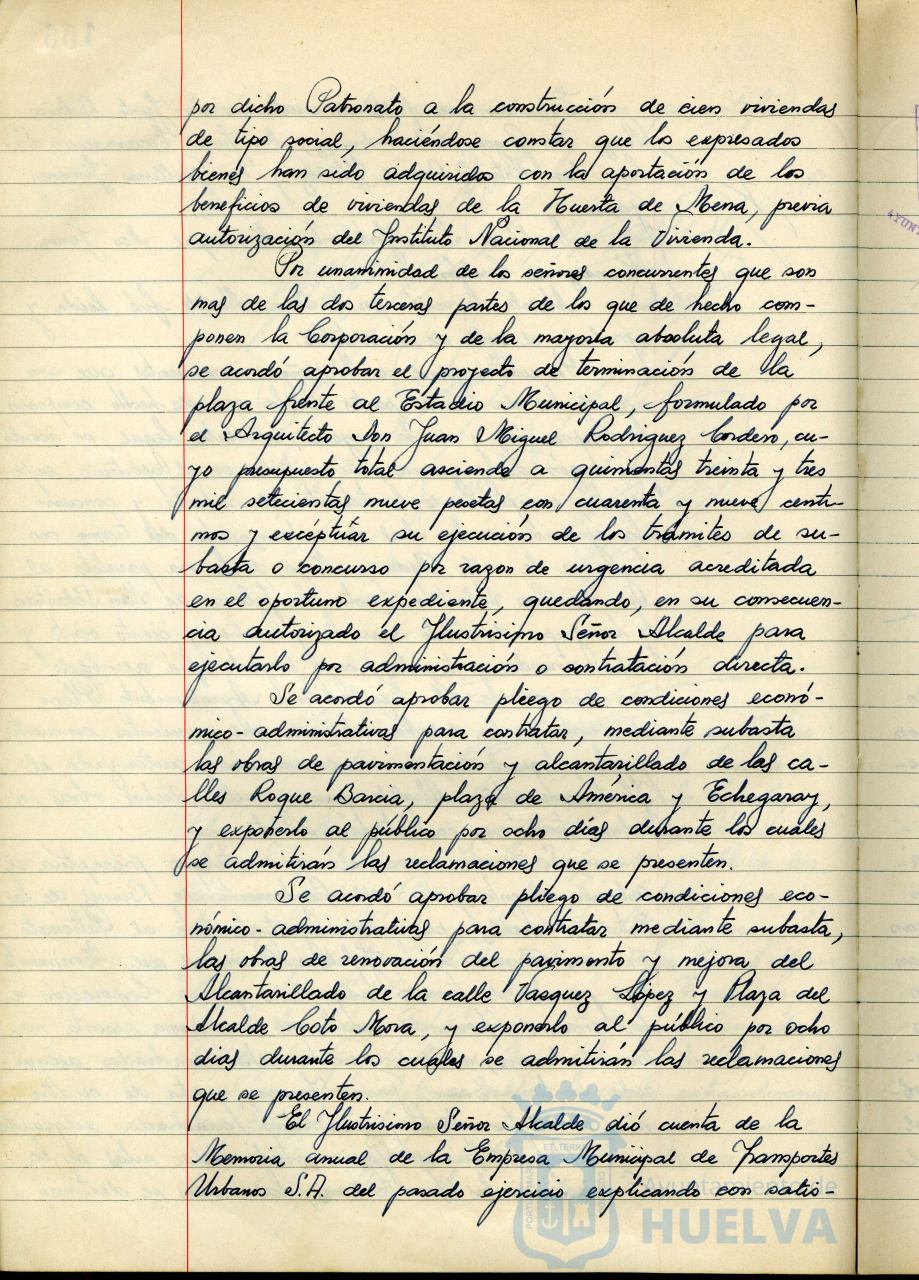 por dicho Patronato a la construcción de cien viviendas
de tipo social, haciéndose constar que los expresados
bienes han sido adquiridos con la aportación de los
beneficios de viviendas de la Huerta de Mena, previa
autorización del Instituto Nacional de la Vivienda.
Por unanimidad de los señores concurrentes que son
mas de las dos terceras partes de los que de hecho com-
ponen la Corporación y de la mayoría absoluta legal,
se acordó aprobar el proyecto de terminación de la
plaza frente al Estadio Municipal, formulado por
el Arquitecto Don Juan Miguel Rodriguez Cordero, cu-
yo presupuesto total asciende a quinientas treinta y tres
mil setecientas nueve pesetas con cuarenta y nueve centi-
mos y exceptuar su ejecución de los tramites de su-
basta o concurso por razon de urgencia acreditada
en el oportuno expediente, quedando, en su consecuen-
cia autorizado el Ilustrisimo Señor Alcalde para
ejecutarlo por administración o contratación directa.
Se acordó aprobar pliego de condiciones econó-
mico-administrativas para contratar, mediante subasta
las obras de pavimentación y alcantarillado de las ca-
lles Roque Barcia, plaza de América y Echegaray,
y exponerlo al público por ocho días durante los cuales
se admitirán las reclamaciones que se presenten.
Se acordó aprobar pliego de condiciones eco-
nómico-administrativas para contratar mediante subasta,
las obras de renovación del pavimento y mejora del
Alcantarillado de la calle Vasquez López y Plaza del
Alcalde Coto Mora, y exponerlo al público por ocho
dias durante los cuales se admitirán las reclamaciones
que se presenten.
El Ilustrisimo Señor Alcalde dió cuenta de la
Memoria anual de la Empresa Municipal de Transportes
Urbanos S.A. del pasado ejercicio explicando con satis-
Ayuntamiento de
HUELVA